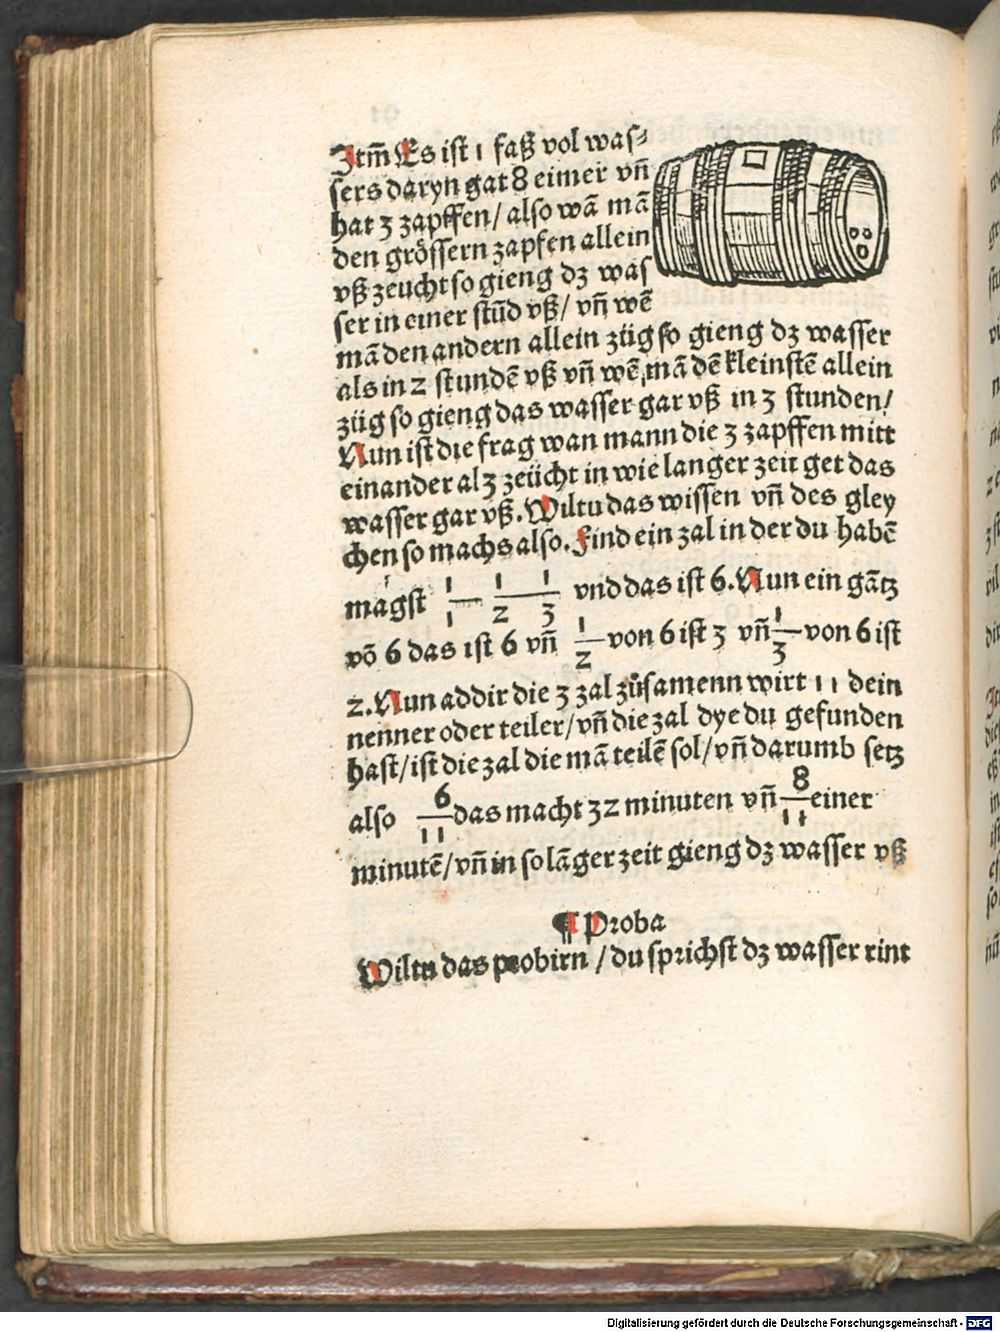 Jtm̃ Es ist 1 faß vol was⸗
sers daryn gat 8 eimer vñ
hat 3 zapffen/ also wã mã
den grössern zapfen allein
vß zeucht so gieng dz was
ser in einer stũd vß/ vñ wẽ
mã den andern allein züg so gieng dz wasser
als in 2 stundẽ vß vñ wẽ mã dẽ kleinstẽ allein
züg so gieng das wasser gar vß in 3 stunden/
Nun ist die frag wan mann die 3 zapffen mitt
einander alz zeücht in wie langer zeit get das
wasser gar vß. Wiltu das wissen vñ des gley
chen so machs also. Find ein zal in der du habẽ
magst 1/1 1/2 1/3 vnd das ist 6. Nun ein gãtz
võ 6 das ist 6 vñ 1/2 von 6 ist 3 vñ 1/3 von 6 ist
2. Nun addir die 3 zal zůsamenn wirt 11 dein
nenner oder teiler/ vñ die zal dye du gefunden
hast/ ist die zal die mã teilẽ sol/ vñ darumb setz
also 6/11 das macht 32 minuten vñ 8/11 einer
minutẽ/ vñ in so lãger zeit gieng dz wasser vß
¶ Proba
Wiltu das probirn/ du sprichst dz wasser rint
Digitalisierung gefördert durch die Deutsche Forschungsgemeinschaft - DFG